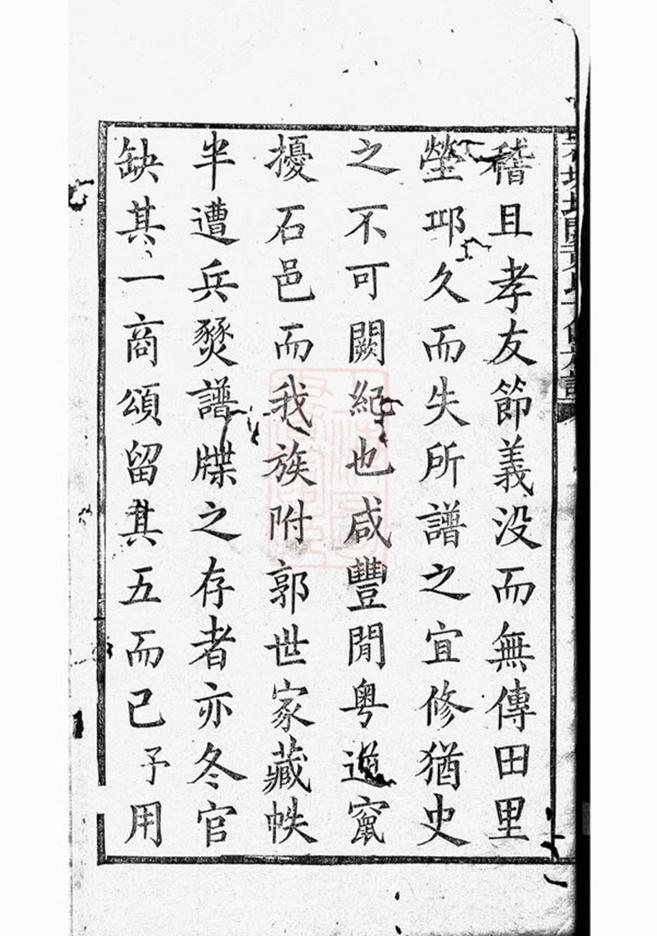 稽且孝友節義没而無傳田里
塋邱久而失所譜之宜修猶史
之不可闕紀也咸豐閒粤逆竄
擾石邑而我族附郭世家藏帙
半遭兵燹譜牒之存者亦冬官
缺其一商頌留其五而已予用